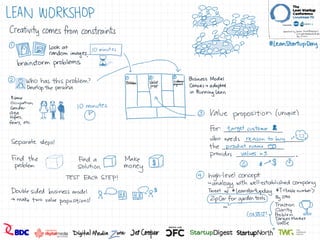 LEAN WORKSHOP
Creativity comes from constraints
The
Lean Startup
Conference
#LeanStartupDay
1
Look at
random images
10 minutes
brainstorm problems
2
Who has this problem?
Develop the persona
Name
Occupation
Gender
Age
Hopes,
fears, etc
10 minutes
P
Business Model
Canvas → adapted
in Running Lean
3
Value proposition (unique)
For target customer
who needs reason to buy
the product name
provides values
Separate steps!
Find the
problem
Find a
Solution
Make
money
$
TEST EACH STEP!
Double sided business model
→ make two value propositions!
4
high-level concept
→ analogy with well-established company
Tweet w/ #LeanStartupDay
ZipCar for garden tools
By 5PM
Traction
Clarity
Problem
BDC
digitalmedia
Digital Media Zone
Jet Cooper
DFC
StartupDigest
StartupNorth